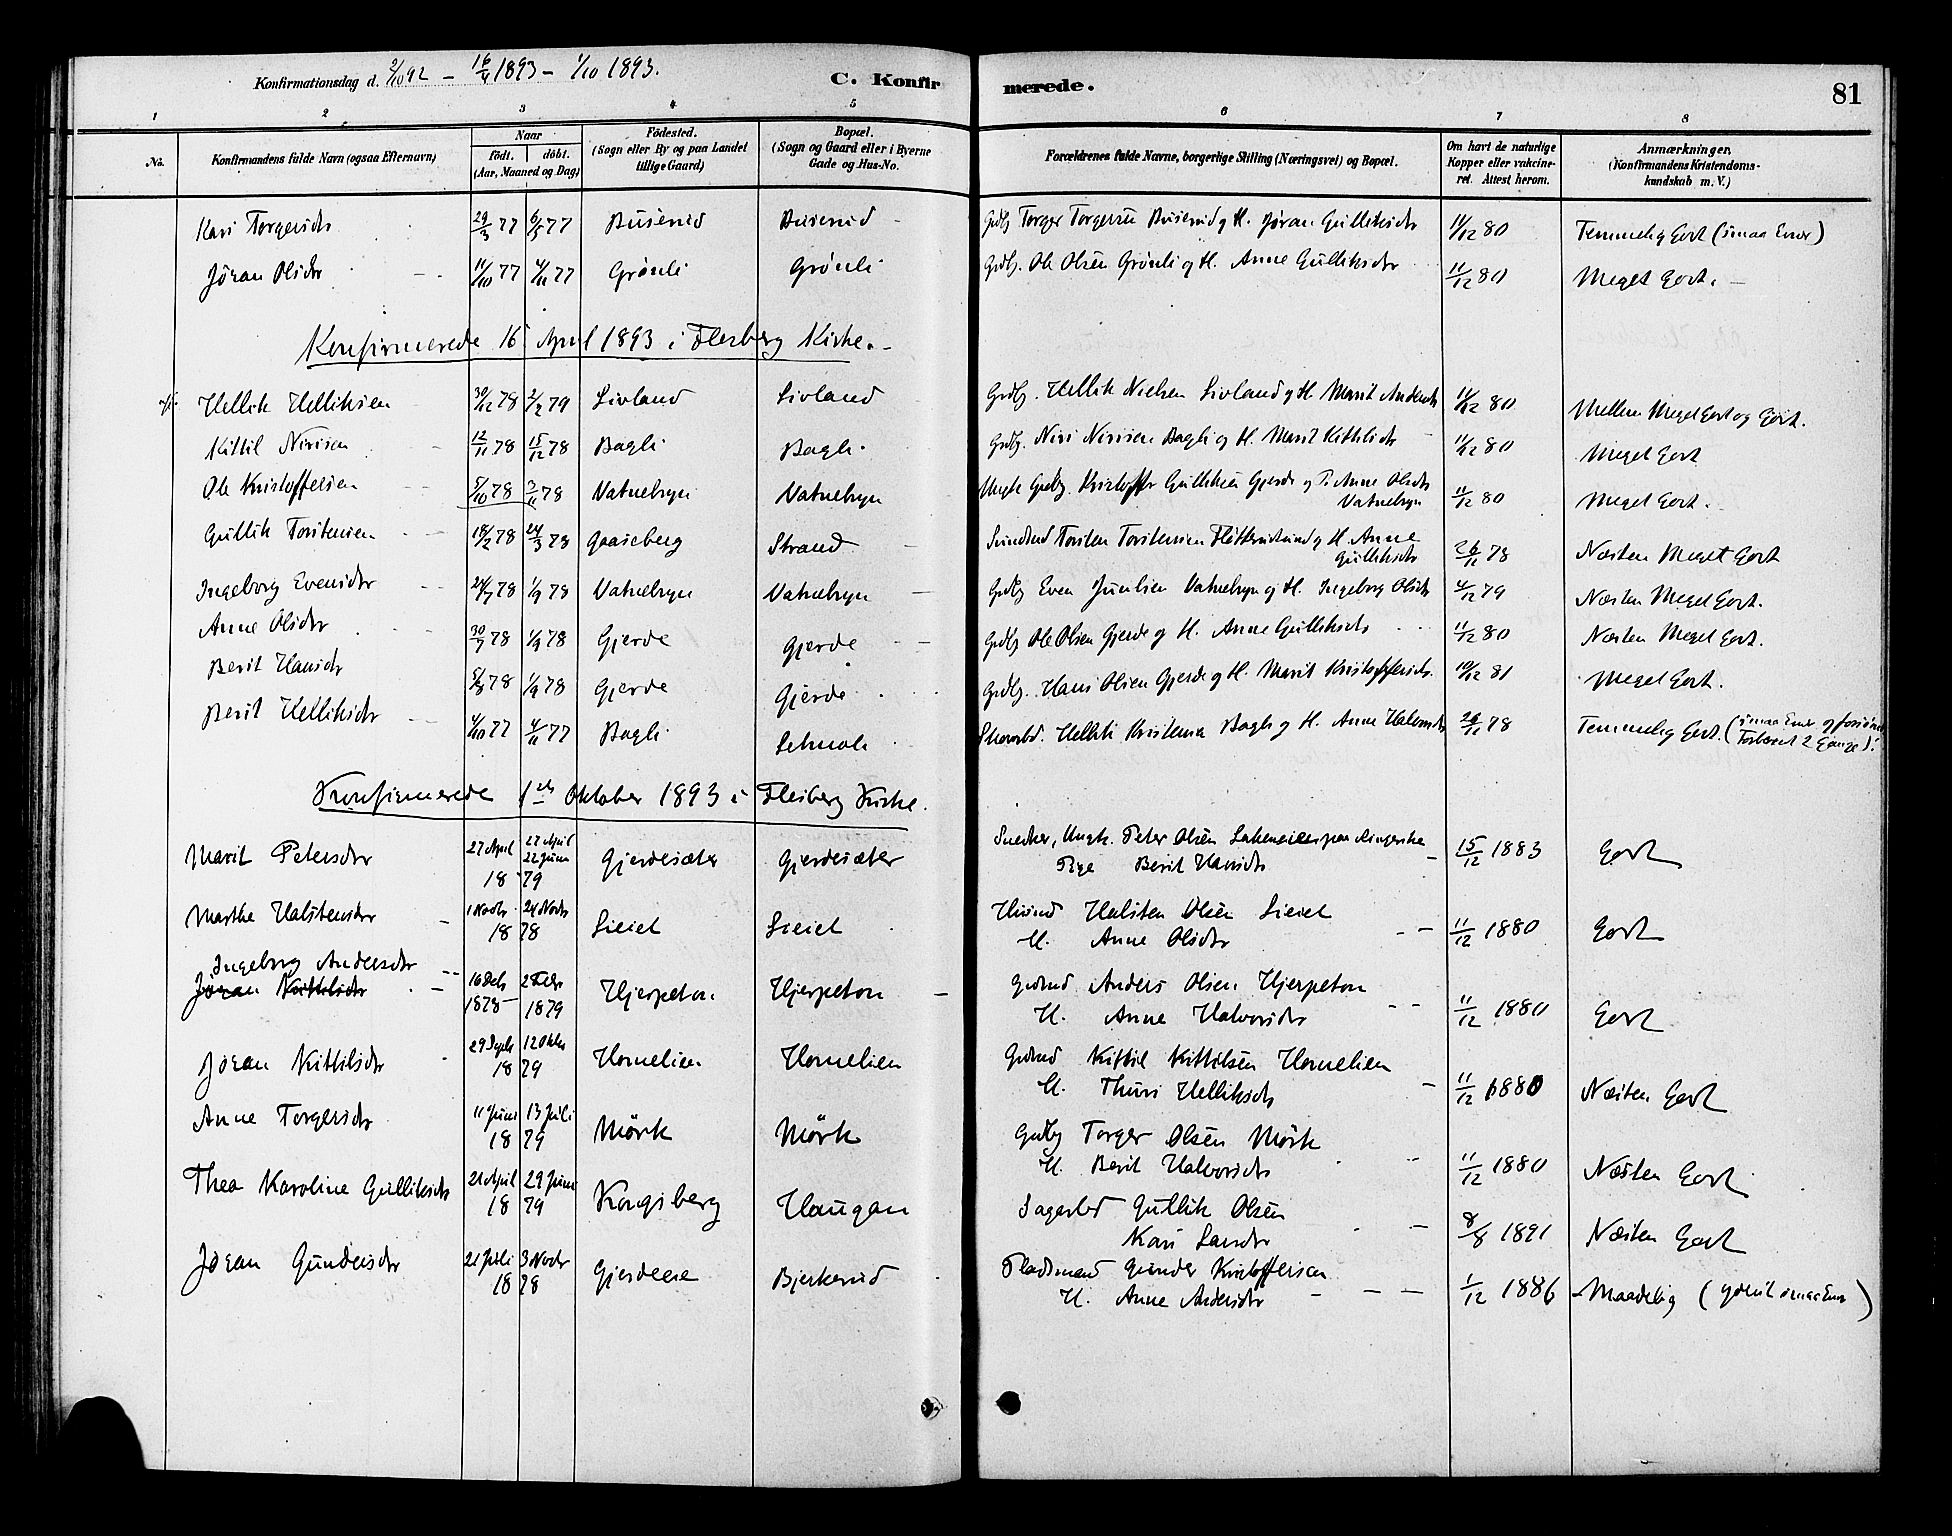 Konfirmationsdag d. 2/10 92 – 16/4 1893 – 1/10 1893.
C. Konfir merede.
81
1 2 3 4 5 6 7 8
No.
Konfirmandens fulde Navn (ogsaa Efternavn)
Naar
födt. döbt.
(Aar, Maaned og Dag)
Födested.
(Sogn eller By og paa Landet
tillige Gaard)
Bopæl.
(Sogn og Gaard eller i Byerne
Gade og Hus-No.
Forældrenes fulde Navne, borgerlige Stilling (Næringsvei) og Bopæl.
Om havt de naturlige
Kopper eller vakcine-
ret. Attest herom.
Anmærkninger,
(Konfirmandens Kristendoms-
kundskab m. V.)
Kari Torgersdr 29/3 77 6/5 77 Buserud Buserud Grdbr Torger Torgersen Buserud og H. Jöran Gulliksdr 11/12 80 Temmelig Godt (smaa Evner)
Jöran Olsdr 11/10 77 4/11 77 Grönli Grönli Grdbr. Ole Olsen Grönli og H. Anne Gulliksdr 11/12 80 Meget Godt. –
Konfirmerede 16 April 1893 i Flesberg Kirke. –
Hellik Helliksen 30/12 78 2/2 79 Livland Livland Grdbr. Hellik Nielsen Livland og H. Marit Andersdr 11/12 80 Mellem Meget Godt og Godt.
Kittil Nirisen 12/11 78 15/12 78 Bagli Bagli. Grdbr. Niri Nirisen Bagli og H. Marit Kittilsdr 11/12 80 Meget Godt
Ole Kristoffersen 5/10 78 3/11 78 Vatnebryn Vatnebryn Ungk. Grdbr. Kristoffer Gulliksen Gjerde og P. Anne Olsdr
Vatnebryn 11/12 80 Meget Godt.
Gullik Torstensen 18/2 78 24/3 78 Gaaseberg Strand Torsten Torstensen og H. Anne
Gulliksdr 26/11 78 Næsten Meget Godt
Ingeborg Evensdr 24/7 78 1/9 78 Vatnebryn Vatnebryn Grdbr Even Juulsen Vatnebryn og H. Ingeborg Olsdr 4/12 79 Næsten Meget Godt.
Anne Olsdr 30/7 78 1/9 78 Gjerde Gjerde Grdbr Ole Olsen Gjerde og H. Anne Gulliksdr 11/12 80 Næsten Meget Godt.
Berit Hansdr 5/8 78 1/9 78 Gjerde Gjerde Grdbr. Hans Olsen Gjerde og H. Marit Kristoffersdr. 10/12 81 Meget Godt.
Berit Helliksdr 4/10 77 4/11 77 Bagli Hellik Kristensen Bagli og H. Anne Halvorsdr 26/11 78 Temmelig Godt. (smaa Evner og
2 Gange).
Konfirmerede 1ste Oktober 1893 i Flesberg Kirke.
Marit Petersdr 27 April 22 Juni 1879 Gjerdesæter Gjerdesæter Snedker, Ungk. Peter Olsen paa Ringerike
Pige Berit Hansdr 15/12 1883 Godt
Marthe Halstensdr 1 Novbr 24 Novbr 1878 Lieiet Lieiet Husmd Halsten Olsen Lieiet
H. Anne Olsdr 11/12 1880 Godt
Ingeborg Andersdr
Jöran Kittilsdr 16 Decbr 1878 2 Febr 1879 Hjerpeton Hjerpeton Grdmd Anders Olsen Hjerpeton
H. Anne Halvorsdr 11/12 1880 Godt
Jöran Kittilsdr 29 Septb 12 Oktbr 1879 Hornelien Hornelien Grdmd Kittil Kittilsen Hornelien
H. Thuri Helliksdr 11/12 1880 Næsten Godt
Anne Torgersdr 11 Juni 13 Juli 1879 Mörk Mörk Grdbr Torger Olsen Mörk
H. Berit Halvorsdr 11/12 1880 Næsten Godt
Thea Karoline Gulliksdr 21 April 29 Juni 1879 Kongsberg Haugan Sagarbd Gullik Olsen
Kari Larsdr 8/8 1891 Næsten Godt
Jöran Gundersdr 21 Juli 3 Novbr 1878 Gjerdeeie Bjerkerud Pladsmand Gunder Kristoffersen
H. Anne Andersdr 1/12 1886 Maadelig (yderst smaa Evner)